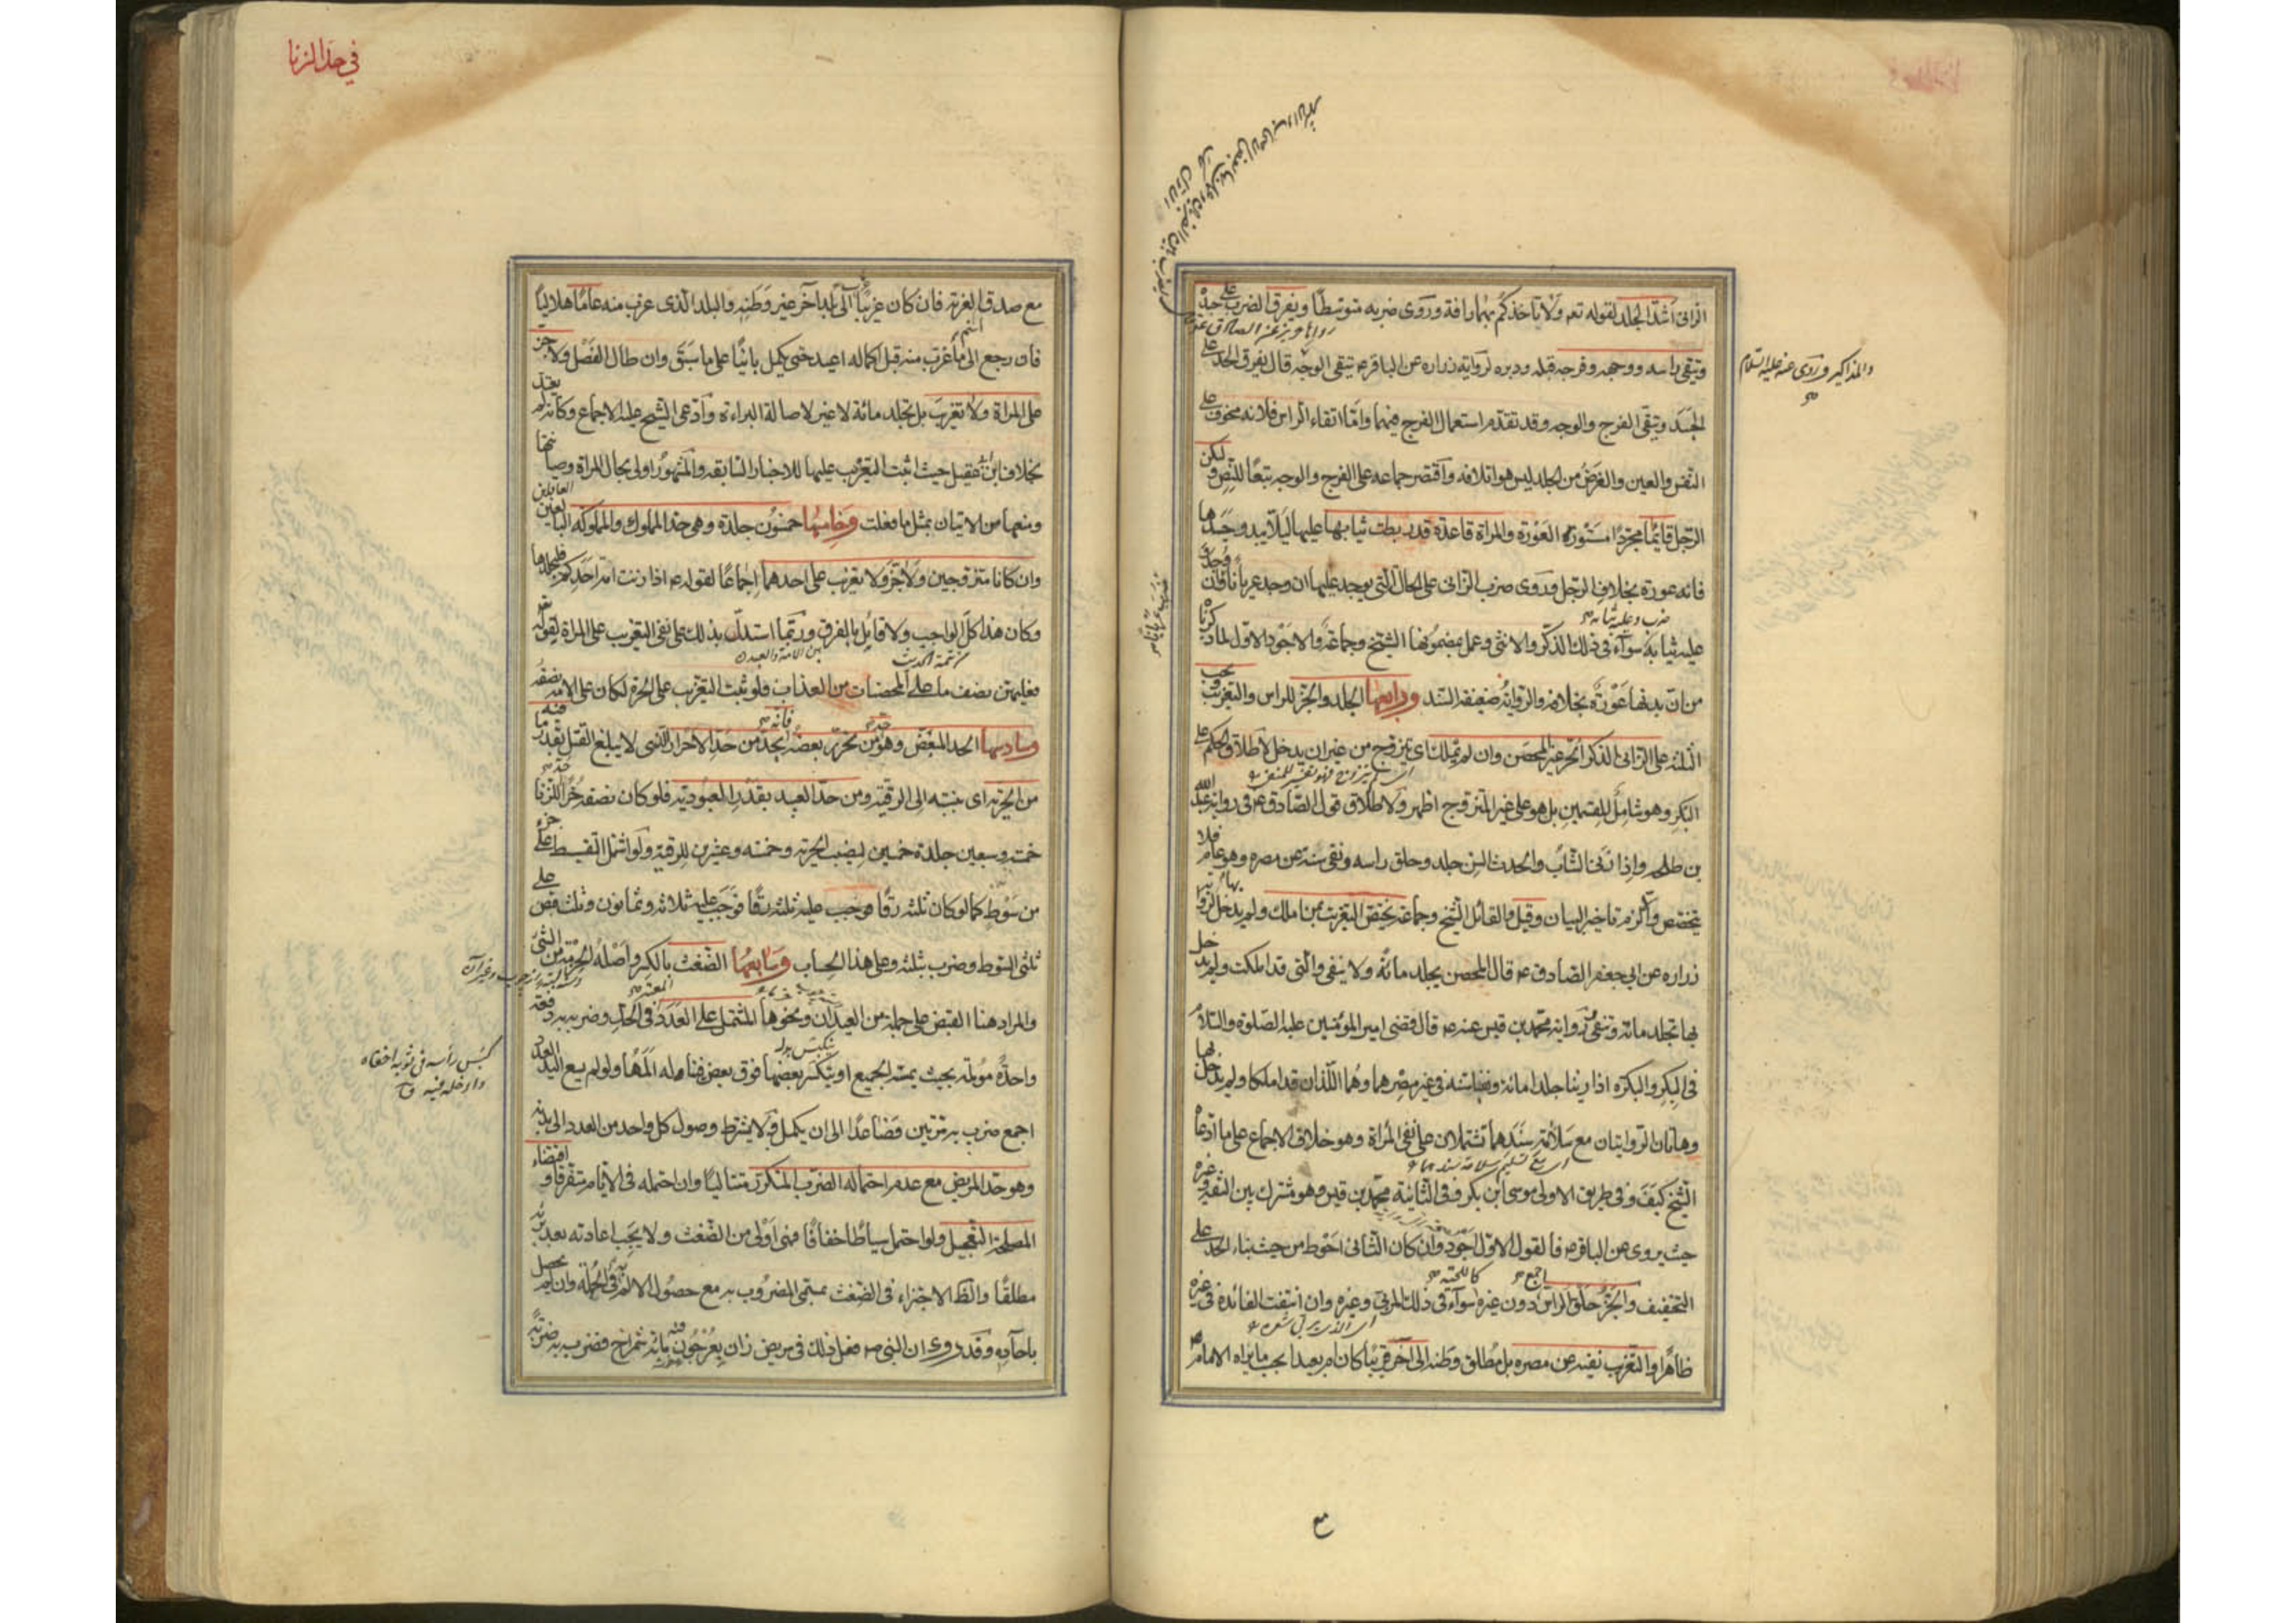 الزانى اشد الجلد لقوله تعم ولا تاخذكم بهما رافة وروى ضربه متوسطا ويفرق الضرب على جسده
ويتقى راسه ووجهه وفرجه قبله ودبره لرواية زراره عن الباقر ع يتقى الوجه قال يفرق الحد على
الجسد ويتقى الفرج والوجه وقد تقدم استعمال الفرج فيهما واما اتقاء الراس فلانه مخوف على
النفس والعين والغرض من الجلد ليس هو اتلافه واقتصر جماعه على الفرج والوجه تبعا للنص وليكن
الرجل قائما مجردا مستور العورة والمراة قاعدة قد ربطت ثيابها عليها ليلا يبدو جسدها
فانه عورة بخلاف الرجل وروى ضرب الزانى على الحال التى يوجد عليها ان وجد عريانا فان وجد
عليه ثيابه سوآء فى ذلك الذكر والانثى وعمل بمضمونها الشيخ وجماعه والاجود الاول لما ذكرناه
من ان بدنها عورة بخلافه والرواية ضعيفة السند ورابعها الجلد والجز للراس والتغريب يجب
الثلثه على الزانى الذكر الحر غير المحصن وان لم يملك اى يتزوج من غير ان يدخل لاطلاق الحكم على
البكر وهو شامل للقسمين بل هو على غير المتزوج اظهر ولاطلاق قول الصادق ع فى رواية عبد الله
بن طلحه واذا زنى الشاب والحدث السن جلد وحلق راسه ونفى سنة عن مصره وهو عام فلا
يتخصص والا لزم تاخير البيان وقيل والقائل الشيخ وجماعة يختص التغريب بمن املك ولم يدخل بها لرواية
زراره عن ابى جعفر الصادق ع قال المحصن يجلد مائة ولا ينفى والتى قد املكت ولم يدخل
بها تجلد مائة وتنفى ورواية محمد بن قيس عنه ع قال قضى امير المؤمنين عليه الصلوة والسلام
فى البكر والبكره اذا زنيا جلدا مائة ونفيا سنه فى غير مصرهما وهما اللذان قد املكا ولم يدخل بها
وهاتان الروايتان مع سلامة سندهما تشتملان على نفى المراة وهو خلاف الاجماع على ما ادعاه
الشيخ كيف وفى طريق الاولى موسى ابن بكر وفى الثانية محمد بن قيس وهو مشترك بين الثقة وغيره
حيث يروى عن الباقر ع فالقول الاول اجود وان كان الثانى احوط من حيث بناء الحد على
التخفيف والجز حلق الراس دون غيره سوآء فى ذلك المربى وغيره وان انتفت الفائدة فى غيره
ظاهرا والتغريب نفيه عن مصره بل مطلق وطنه الى آخر قريبا كان ام بعيدا بحسب ما يراه الامام
والمذاكير وروى عنه عليه السلام
فى حد الزنا
مع صدق الغربة فان كان غريبا الى بلد آخر غير وطنه والبلد الذى غرب منه عاما هلاليا
فان رجع الى ما غرب منه قبل اكماله اعيد حتى يكمل بانيا على ما سبق وان طال الفصل ولا جز
على المراة ولا تغريب بل تجلد مائة لا غير لاصالة البراءة وادعى الشيخ عليه الاجماع وكانه لم يعتد
بخلاف ابن ابى عقيل حيث اثبت التغريب عليها للاخبار السابقه والمشهور اولى بحال المراة وصيانتها
ومنعها من الاتيان بمثل ما فعلت وخامسها خمسون جلدة وهى حد المملوك والمملوكة البالغين العاقلين
وان كانا متزوجين ولا جز ولا تغريب على احدهما اجماعا لقوله ع اذا زنت امة احدكم فليجلدها
وكان هذا كل الواجب ولا قائل بالفرق وربما استدل بذلك على نفى التغريب على المراة لقوله تعم
فعليهن نصف ما على المحصنات من العذاب فلو ثبت التغريب على الحرة لكان على الامة نصفه
وسادسها الحد المبعض وهو حد من تحرر بعضه فانه يحد من حد الاحرار الذى لا يبلغ القتل بقدر ما فيه
من الحرية اى بنسبته الى الرقية ومن حد العبيد بقدر العبودية فلو كان نصفه حرا حد للزنا
خمسه وسبعين جلدة خمسين لنصيب الحرية وخمسه وعشرين للرقية ولو اشتمل التقسيط على جزء
من سوط كما لو كان ثلثه رقا فوجب عليه ثلثه وثمانون وثلث قبض على
ثلثى السوط وضرب بثلثه وعلى هذا الحساب وسابعها الضغث بالكسر واصله الحزمة من الشئ
والمراد هنا القبض على جملة من العيدان ونحوها المشتمل على العدد المعتبر فى الحد وضربه به دفعة
واحدة مؤلمة بحيث يمسه الجميع او ينكبس بعضها فوق بعض فيناله المها ولو لم يسع اليد العدد
اجمع ضرب به مرتين فصاعدا الى ان يكمل ولا يشترط وصول كل واحد من العدد الى بدنه
وهو حد المريض مع عدم احتماله الضرب المتكرر متتاليا وان احتمله فى الايام متفرقا واقتضاء
المصلحة التعجيل ولو احتمل سياطا خفافا فهى اولى من الضغث ولا يجب اعادته بعد برئه
مطلقا والظ الاجتزاء فى الضغث بمسمى المضروب به مع حصول الالم به فى الجملة وان لم يحصل
باحآده وقد روى ان النبى ص فعل ذلك فى مريض زان بعرجون فيه مائة شمراخ فضرب به ضربة
كبس رأسه فى ثوبه اخفاه
وادخله فيه ق